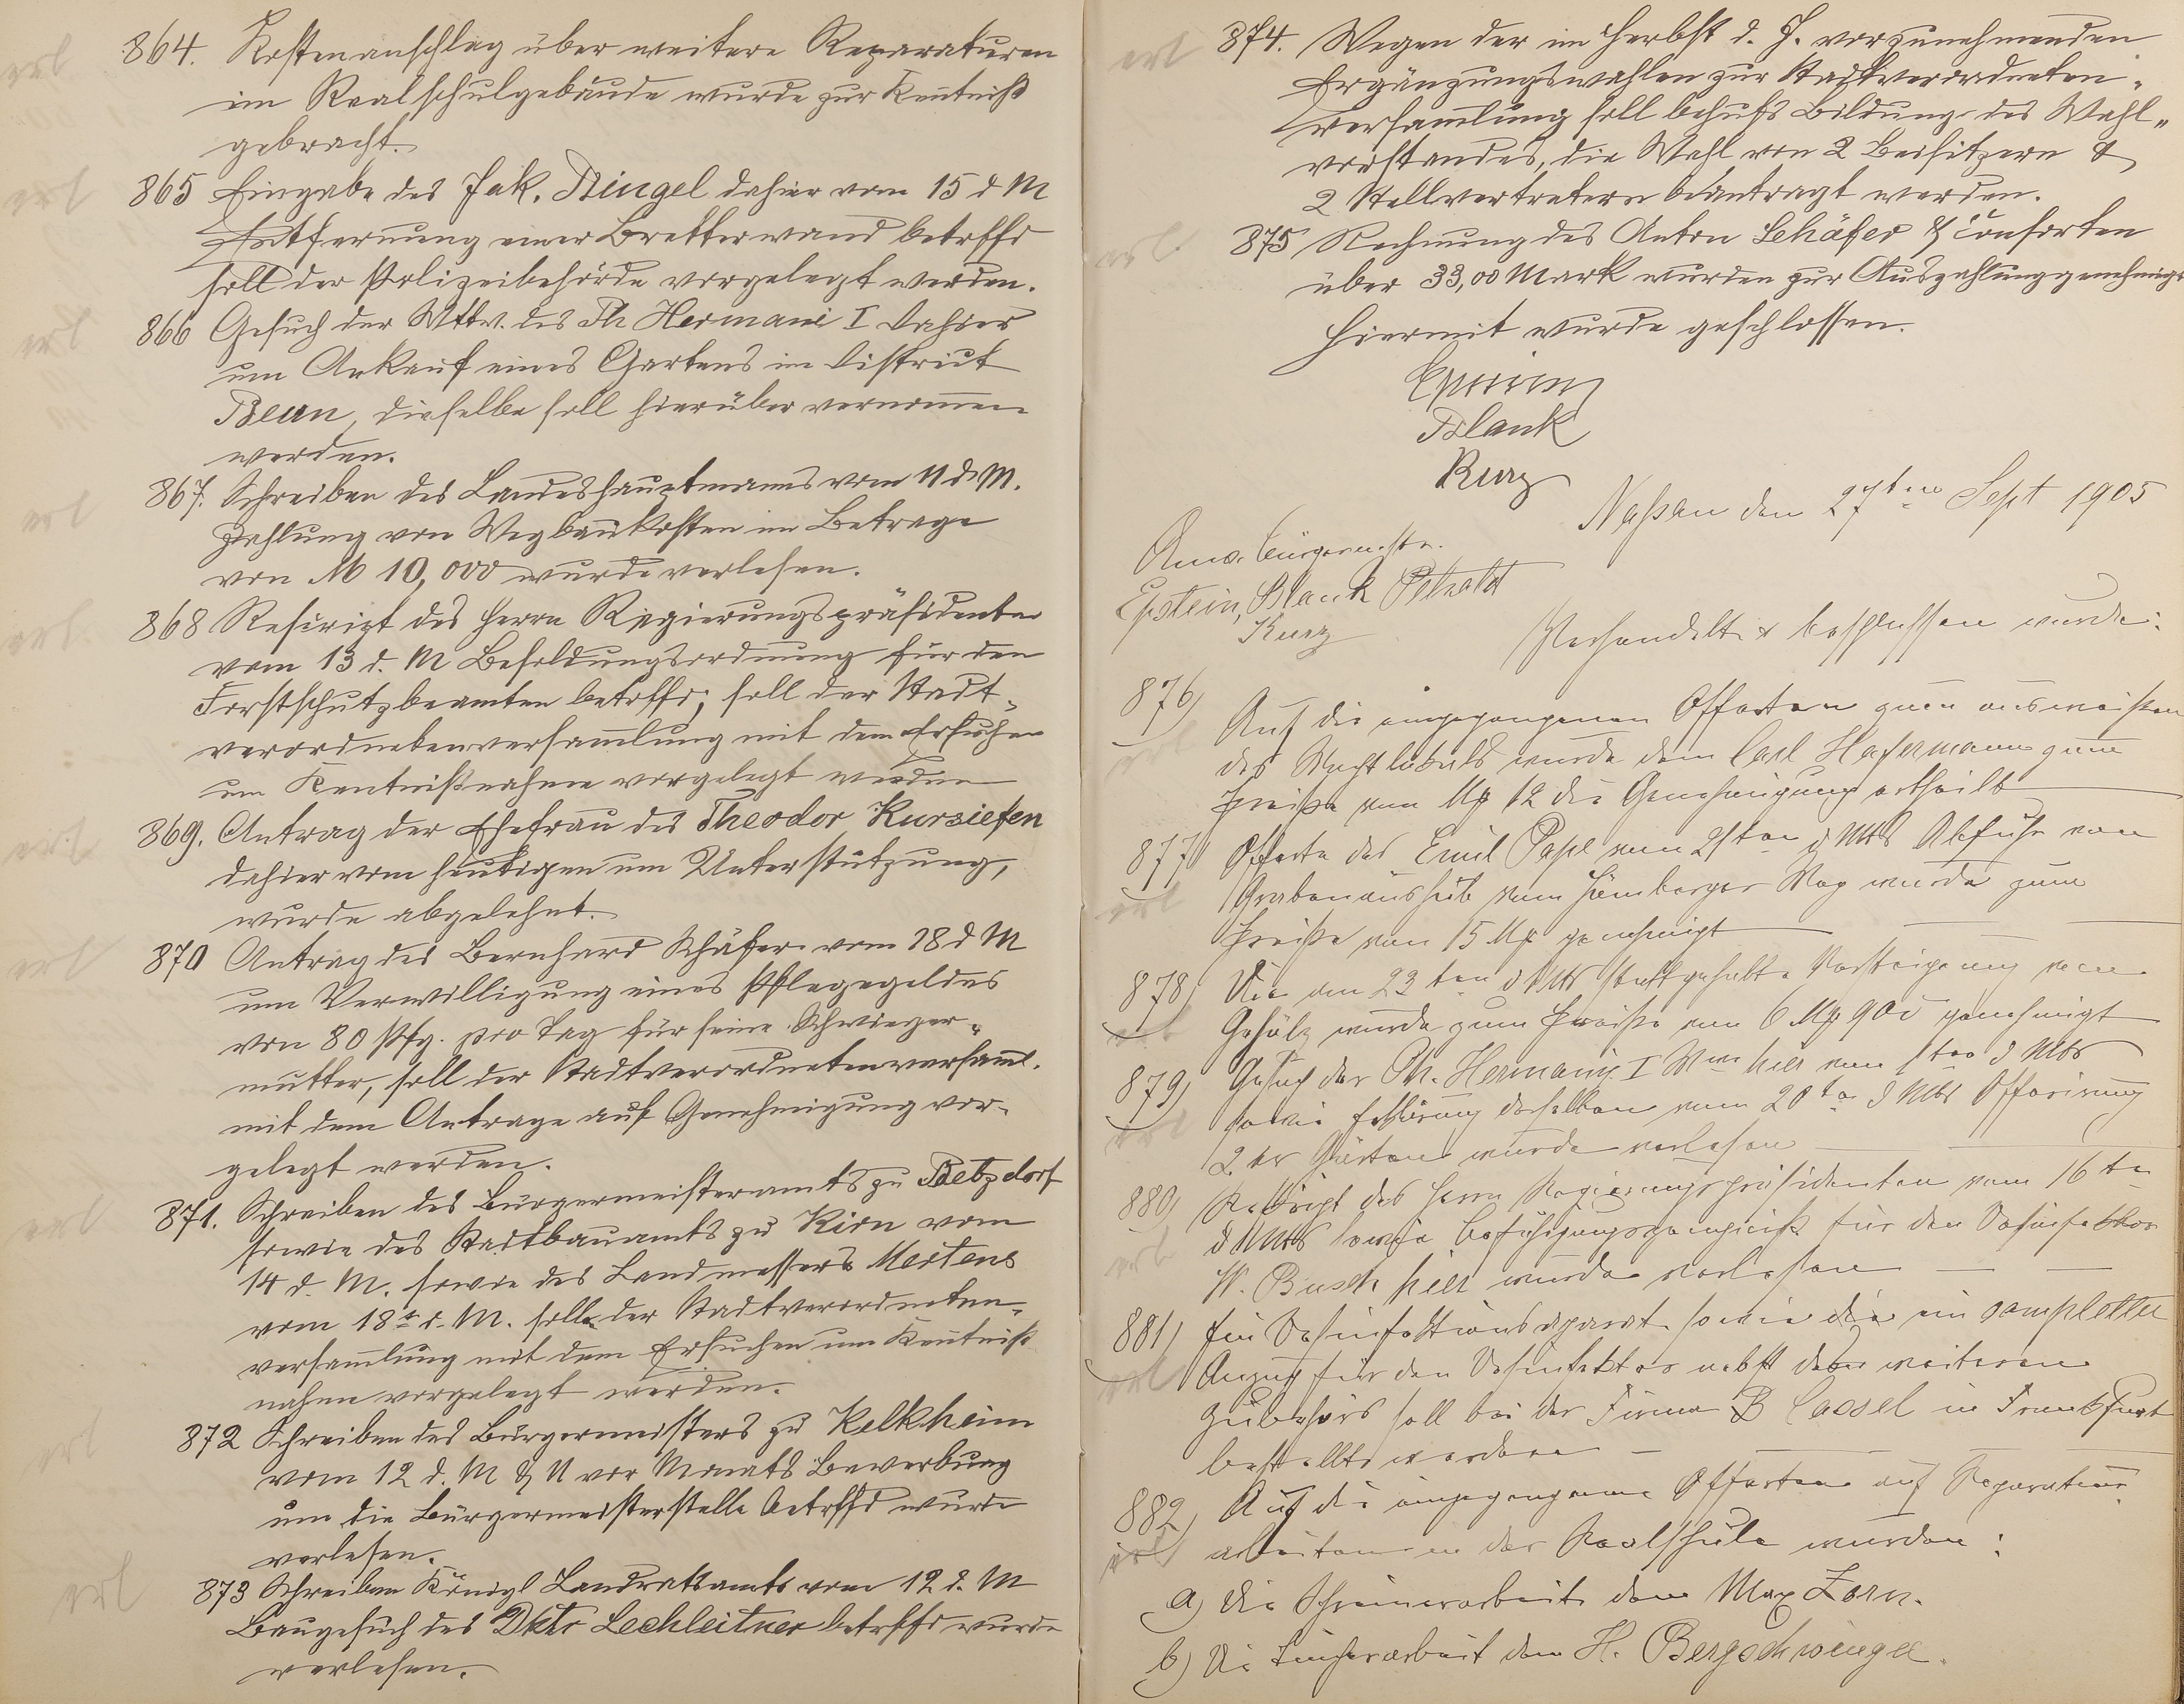 864. Kostenanschlag über weitere Reparaturen
im Realschulgebäude wurde zur Kenntniß
gebracht.
865 Eingabe des Jak. Bingel dahier vom 15 d M
Entfernung einer Bretterwand betrffd
soll der Polizeibehörde vorgelegt werden.
866 Gesuch der Wttw. des Ph Hermani I dahier
um Ankauf eines Gartens im District
Beun, dieselbe soll hierüber vernommen
werden.
867. Schreiben des Landeshauptmanns vom 11 d M.
Zahlung von Wegbaukosten im Betrage
von M 10,000 wurde verlesen.
868 Rescript des Herrn Regierungspräsidenten
vom 13 d. M Besoldungsordnung für den
Forstschutzbeamten betrffd, soll der Stadt-
verordnetenversammlung mit dem Ersuchen
um Kenntnißnahme vorgelegt werden
869. Antrag der Ehefrau des Theodor Kursiefen
dahier vom heutigen um Unterstützung,
wurde abgelehnt.
870 Antrag des Bernhard Schäfer vom 18 d M
um Verwilligung eines Pflegegeldes
von 80 Pfg. pro Tag für seine Schwieger-
mutter, soll der Stadtverordnetenversaml.
mit dem Antrage auf Genehmigung vor-
gelegt werden.
871. Schreiben des Bürgermeisteramts zu Betzdorf
sowie des Stadtbauamts zu Kirn vom
14 d. M. sowie des Landmessers Mertens
vom 18ten d. M. soll der Stadtverordneten-
versammlung mit dem Ersuchen um Kenntniß
nahme vorgelegt werden.
872 Schreiben des Bürgermeisters zu Kelkheim
vom 12 d. M & 11 vor Monats Bewerbung
um die Bürgermeisterstelle betrffd wurde
verlesen.
873 Schreiben Königl Landratsamts vom 12 d. M
Baugesuch des Dktr Lechleitner betrffd wurde
verlesen.
874. Wegen der im Herbst d. J. vorzunehmenden
Ergänzungswahlen zur Stadtverordneten-
versammlung soll behufs Bildung des Wahl-
vorstandes, die Wahl von 2 Beisitzern &
2 Stellvertretern beantragt werden.
875 Rechnung des Anton Schäfer & Consorten
über 33,00 Mark wurden zur Auszahlung genehmigt
Hiermit wurde geschlossen.
Epstein
Blank
Kurz
Naßau den 27ten Sept 1905
Anw. Bürgermstr.
Epstein, Blank Petzold
Kurz
Verhandelt & beschlossen wurde:
876) Auf die eingegangenen Offerten zum ausweißen
des Wachtlokals wurde dem Carl Hafermann zum
Preiße von Mk 12 die Genehmigung ertheilt
877) Offerte des Emil Pape vom 21ten d Mts Abfuhr von
Grabenaushub vom Hömberger Weg wurde zum
Preiße von 15 Mk genehmigt
878) Die am 23ten d Mts stattgehabte Versteigerung von
Gehölz wurde zum Preiße von 6 Mk 90 genehmigt
879) Gesuch der Ph. Hermani I Wwe hier vom 1ten d Mts
sowie Erklärung derselben vom 20ten d Mts Offerirung
2er Gärten wurde verlesen
880) Rescript des Herrn Regierungspräsidenten vom 16ten
d Mts sowie Befähigungszeugniß für den Desinfektor
W. Busch hier wurde verlesen
881) Ein Desinfektionsapparat sowie die ein complotter
Anzug für den Desinfektor nebst dem weiteren
Zubehörs soll bei der Firma B Cassel in Frankfurt
bestellt werden
882) Auf die eingegangene Offerten auf Reparatur
arbeiten in der Realschule wurden:
a) die Schreinerarbeit dem Max Zorn.
b) die Tüncherarbeit dem H. Bergschwinger.